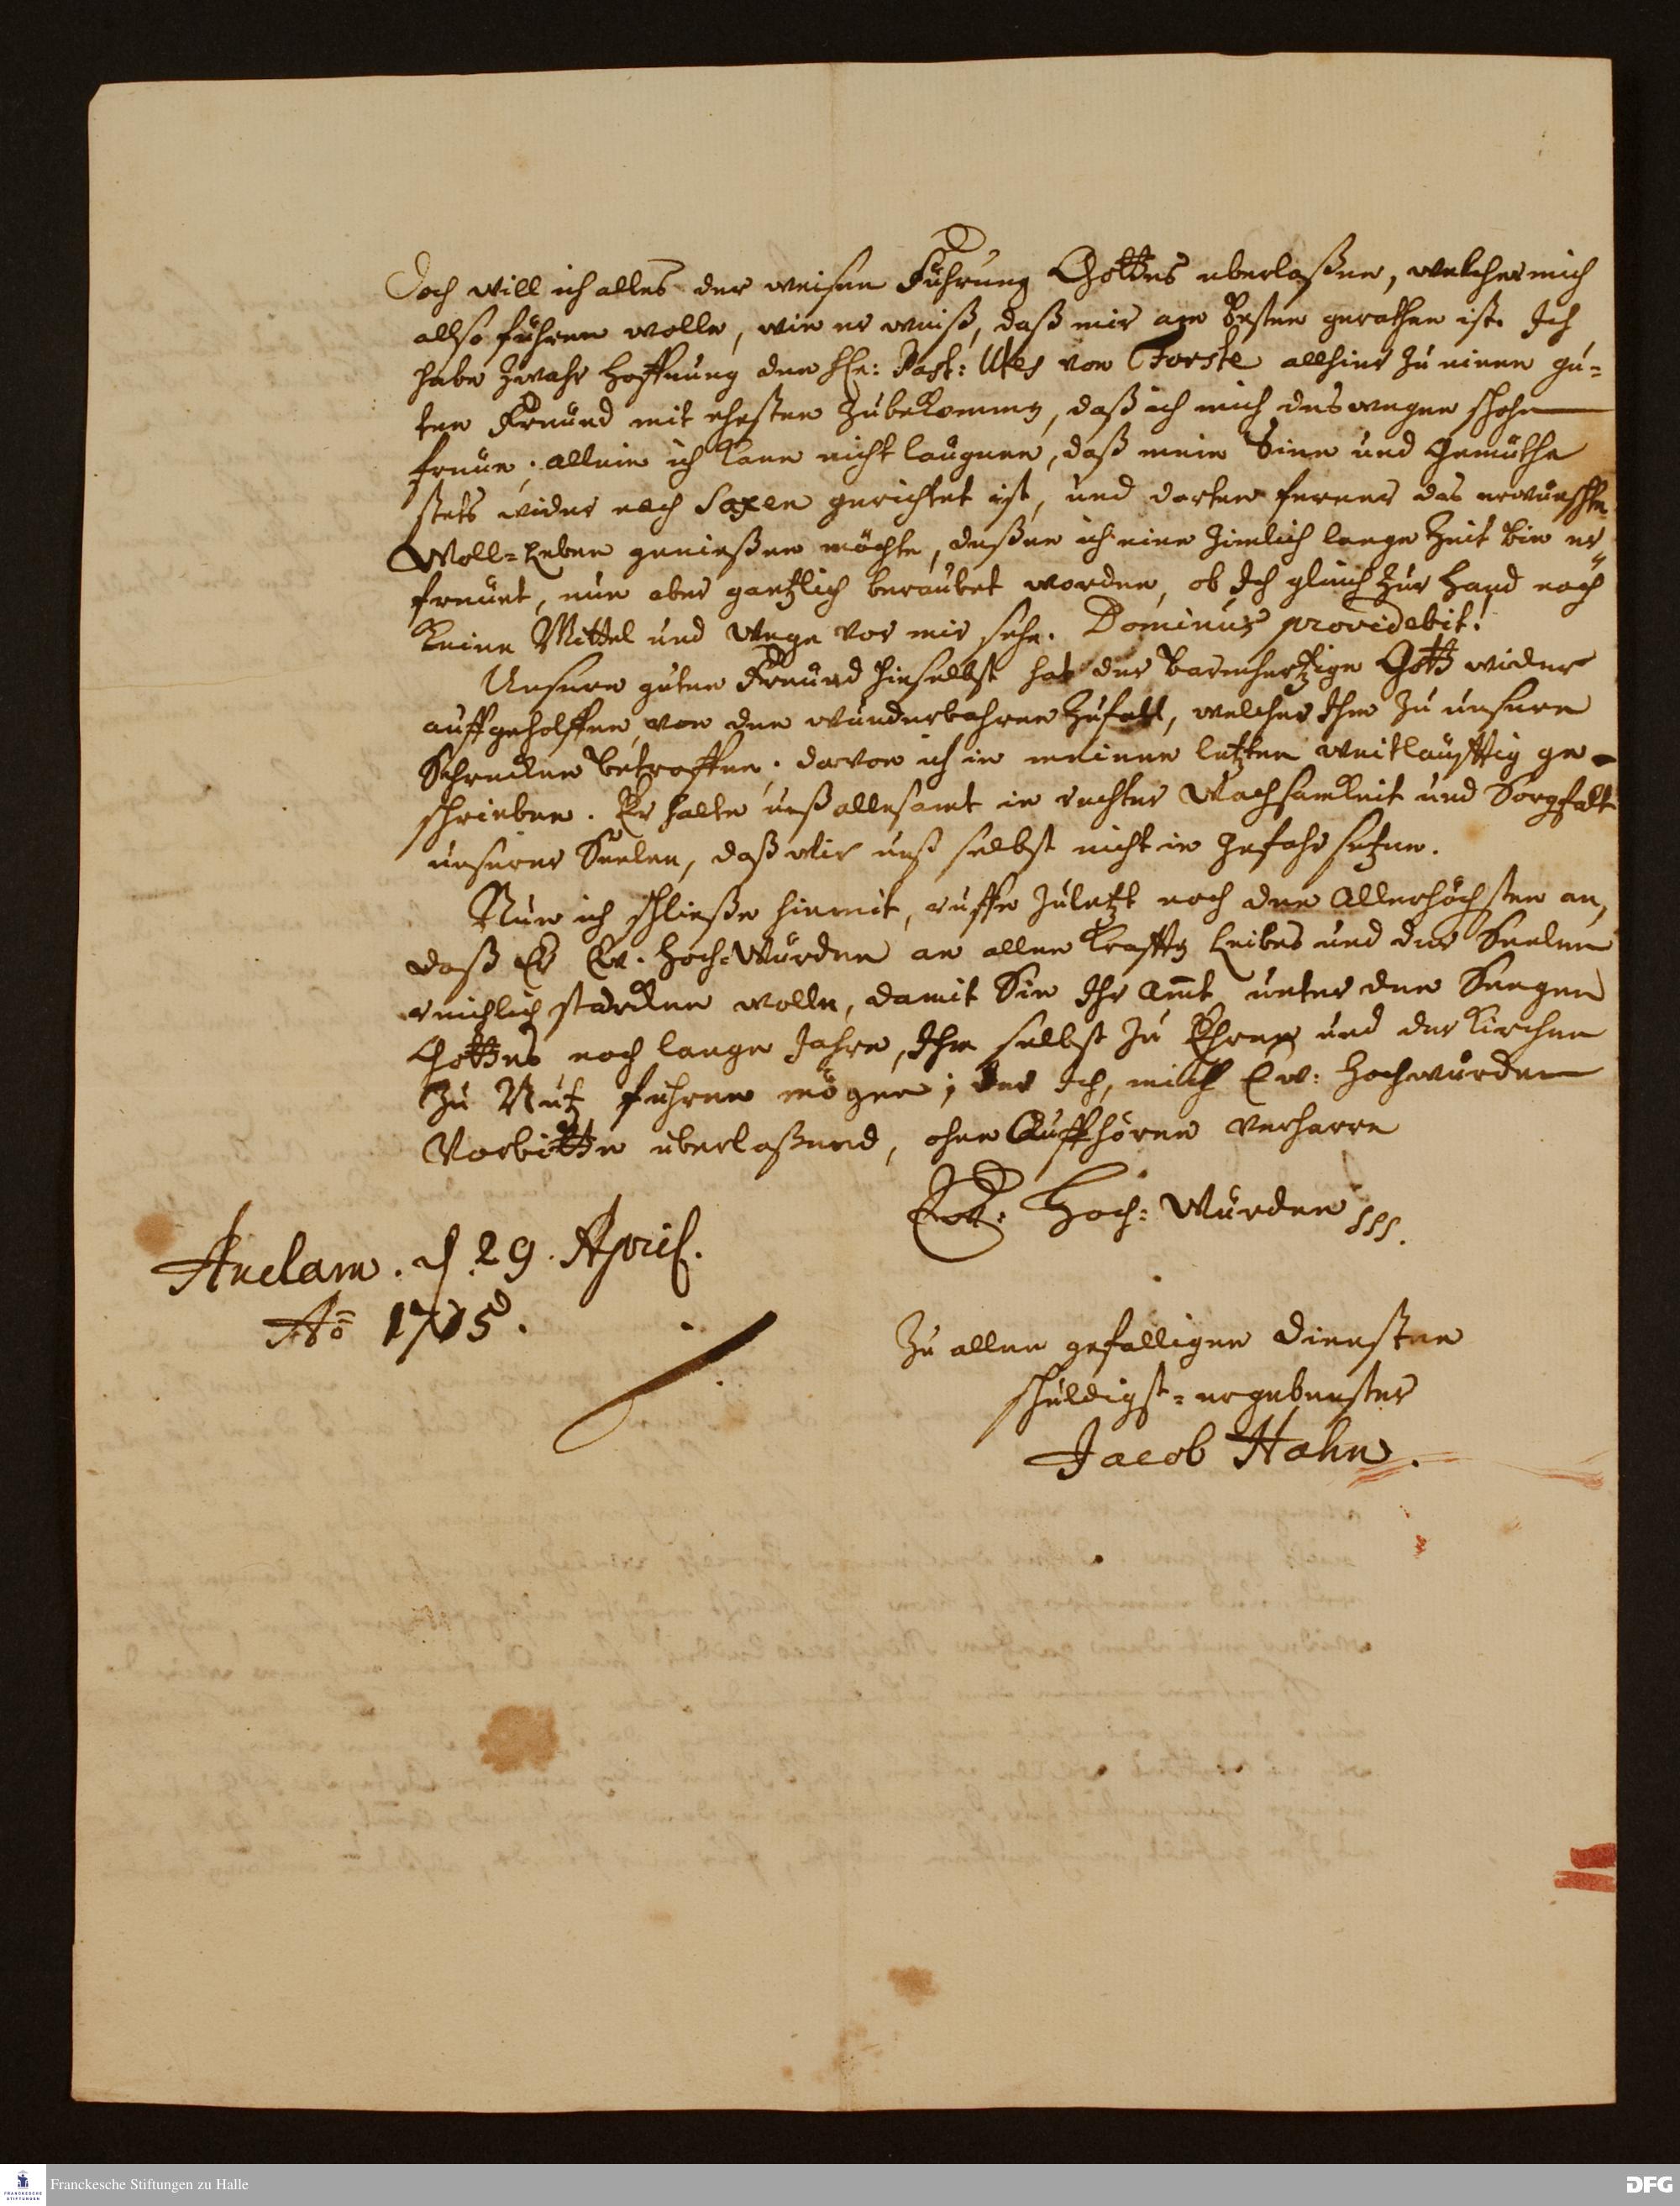 Doch will ich alles der weisen Führung Gottes uberlaßen, welcher mich
allso führen wolle, wie er weiß, daß mir am Besten gerathen ist. Ich
habe zwahr Hoffnung den HEr: Past: Utes von Forste allhier zu einen gu-
ten Freünd mit ehesten zubekommen, daß ich mich deswegen schohn
freüe; allein ich kann nicht laügnen, daß mein Sinn und Gemüthe
stets wider nach Saxen gerichtet ist, und dorten ferner das erwünschte
Woll-Leben genießen möchte, deßen ich eine zimlich lange Zeit bin er-
freüet, nun aber gantzlich beraubet worden, ob Ich gleich zur Hand noch
keine Mittel und Wege vor mir sehe. Dominus providebit!
Unsern guten Freünd hieselbst hat der Barmhertzige Gott wider
auffgeholffen, von den wunderbahren Zufall, welcher Ihm zu unsern
Schrecken betroffen; davon ich in meinen letzten weitläufftig ge-
schrieben. Er halte unß allesamt in rechter Wachsamkeit und Sorgfalt
unserer Seelen, daß wir unß selbst nicht in Gefahr setzen.
Nun ich schließe hiemit, ruffe zuletzt noch den Allerhöchsten an,
daß Er Ew. Hoch-Würden an allen Krafften Leibes und der Seelen
reichlich starcken wolle, damit Sie Ihr Amt unter den Seegen
Gottes noch lange Jahre, Ihm selbst zu Ehren und der Kirchen
zu Nutz führen mögen; der Ich, mich Ew: Hochwürden
Vorbitte uberlaßend, ohne Auffhören verharre
Ew: Hoch: Würden
Anclam. d. 29. April.
Ao 1715.
Zu allen gefälligen Diensten
schuldigst-ergebenster
Jacob Hahn.
Franckesche Stiftungen zu Halle
FRANCKESCHE
STIFTUNGEN
DFG